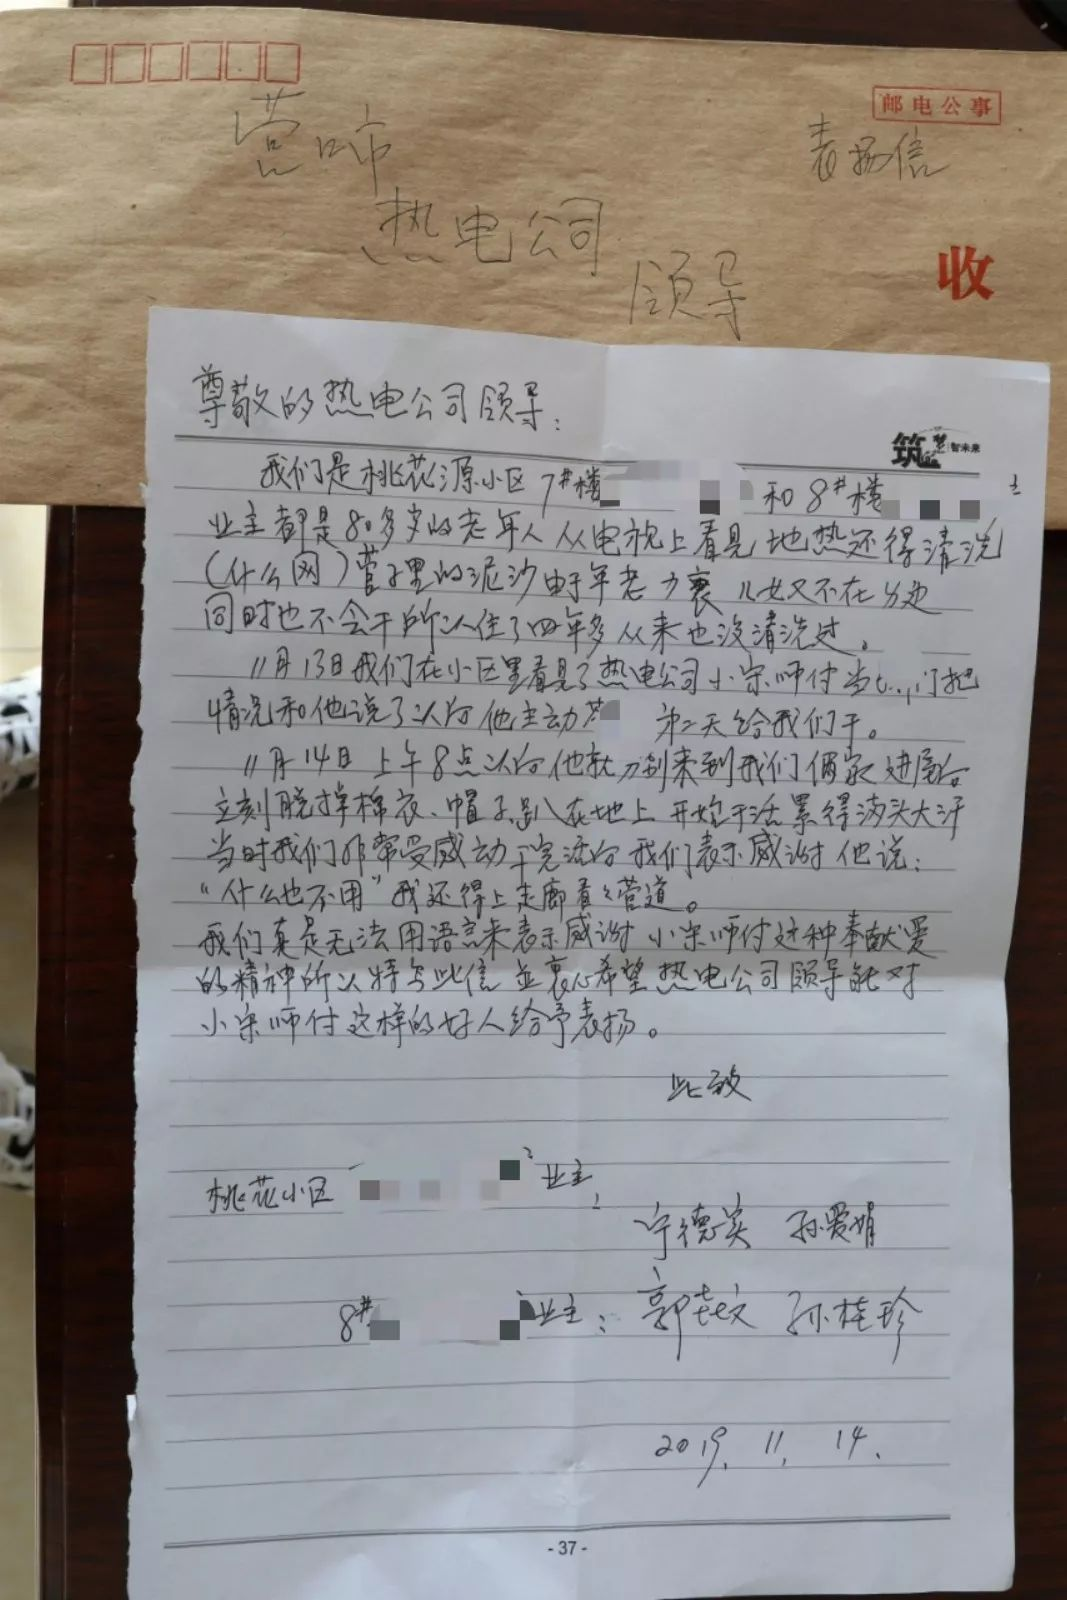 邮电公事
营口市
表扬信
热电公司
领导
收
尊敬的热电公司领导：
筑 智未来
我们是桃花源小区7#楼 和8#楼
业主都是80多岁的老年人从电视上看见地热还得清洗
(什么网)管子里的泥沙由于年老力衰儿女又不在身边
同时也不会干所以住了四年多从来也没清洗过。
11月13日我们在小区里看见了热电公司小宋师付当 们把
情况和他说了以后他主动 第二天给我们干。
11月14日上午8点以后他就 到来到我们俩家进屋后
立刻脱掉棉衣、帽子趴在地上开始干活累得满头大汗
当时我们非常受感动干完活后我们表示感谢他说：
“什么也不用”我还得上走廊看看管道。
我们真是无法用语言来表示感谢小宋师付这种奉献爱
的精神所以特写此信并衷心希望热电公司领导能对
小宋师付这样的好人给予表扬。
此致
桃花小区 业主
宁德 孙爱娟
8# 业主：郭 文 孙桂珍
2019.11.14.
-37-